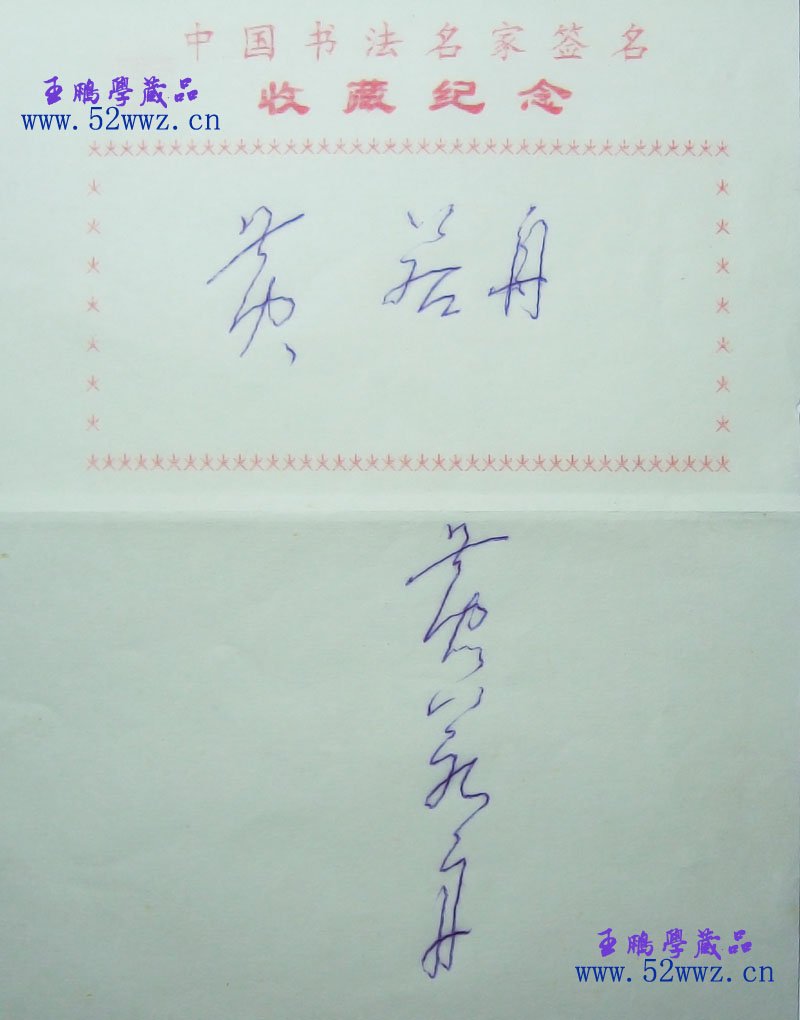 中国书法名家签名
王鹏學藏品
收藏纪念
www.52wwz.cn
黄若舟
黄若舟
王鹏學藏品
www.52wwz.cn